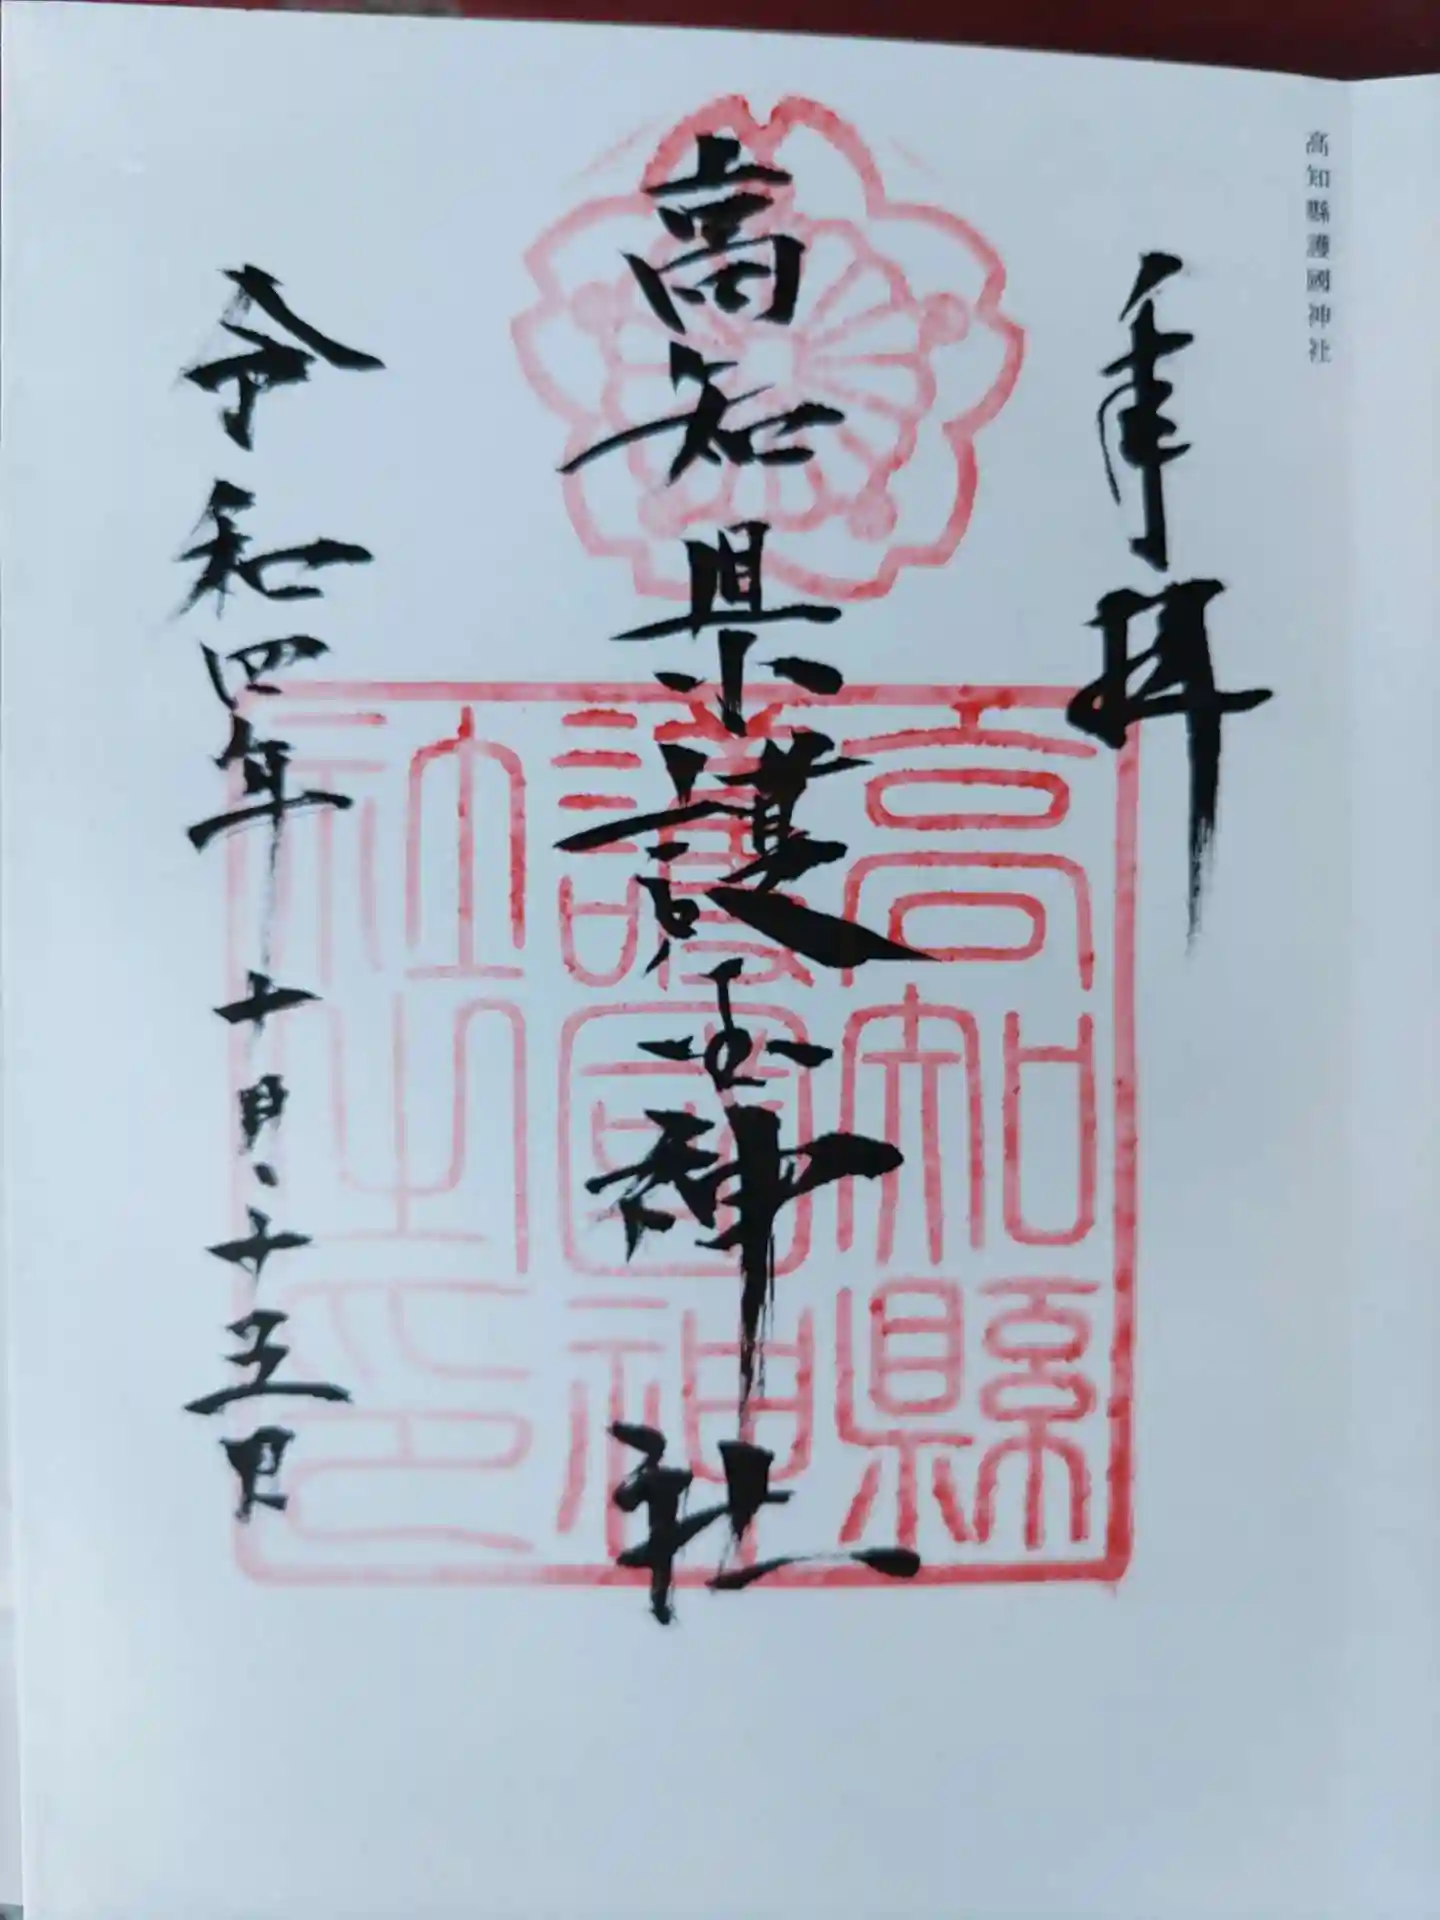 高知縣護國神社
奉拝
高知県護国神社
高知縣
護國神
社之印
令和四年十月二十五日